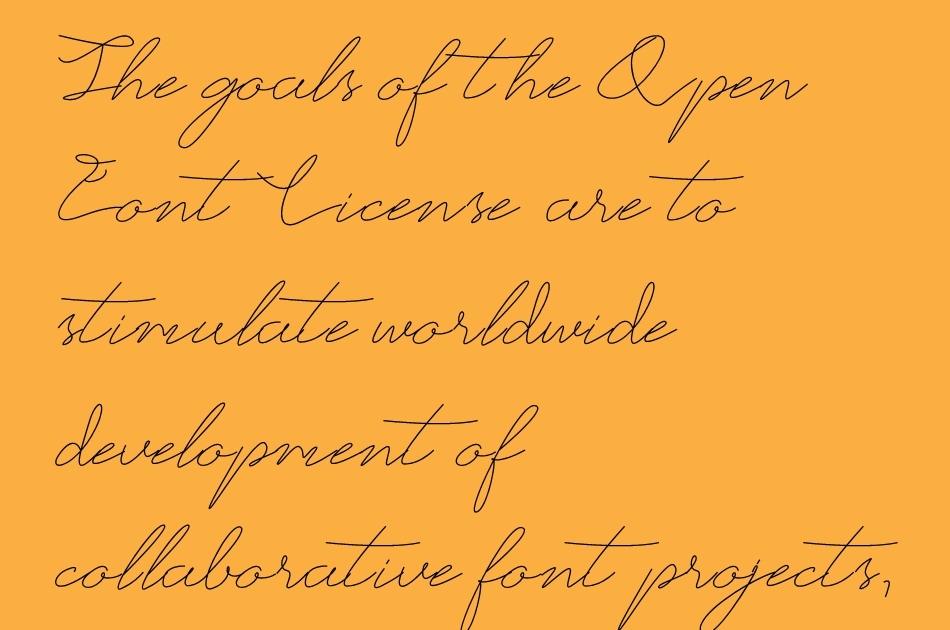 The goals of the Open
Font License are to
stimulate worldwide
development of
collaborative font projects,